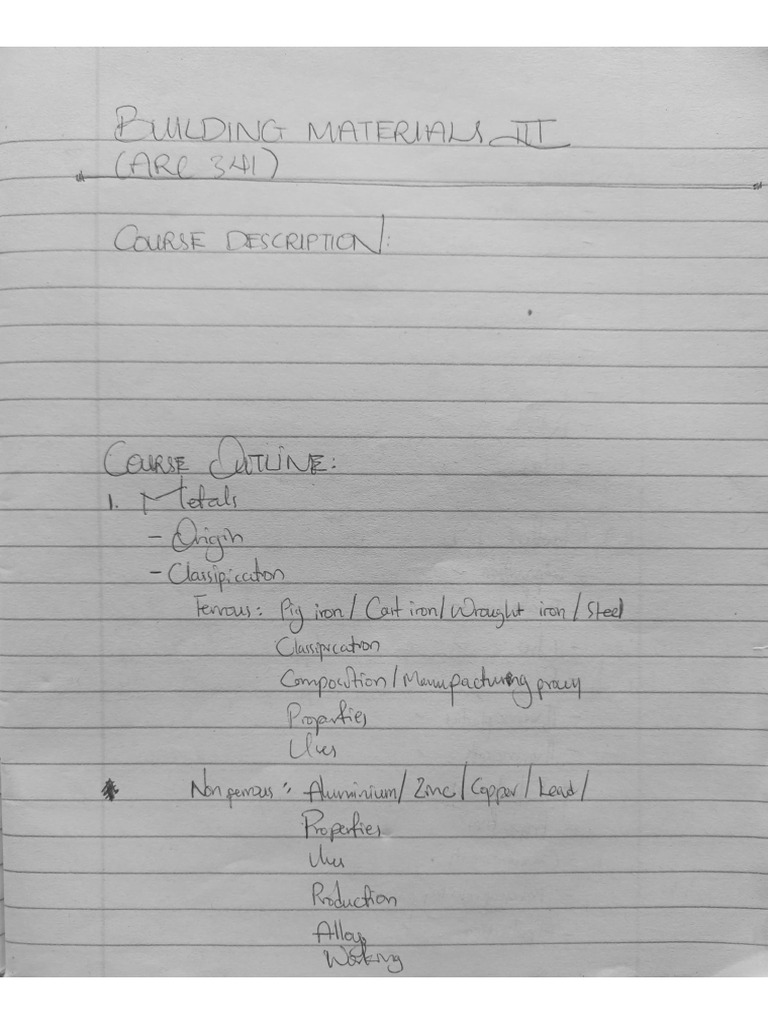 BUILDING MATERIALS III
(ARC 341)
COURSE DESCRIPTION:
COURSE OUTLINE:
1. Metals
- Origin
- Classification
Ferrous: Pig iron/ Cast iron/ Wrought iron/ Steel
Classification
Composition/ Manufacturing process
Properties
Uses
Non ferrous: Aluminium/ Zinc/ Copper/ Lead/
Properties
Uses
Production
Alloys
Working